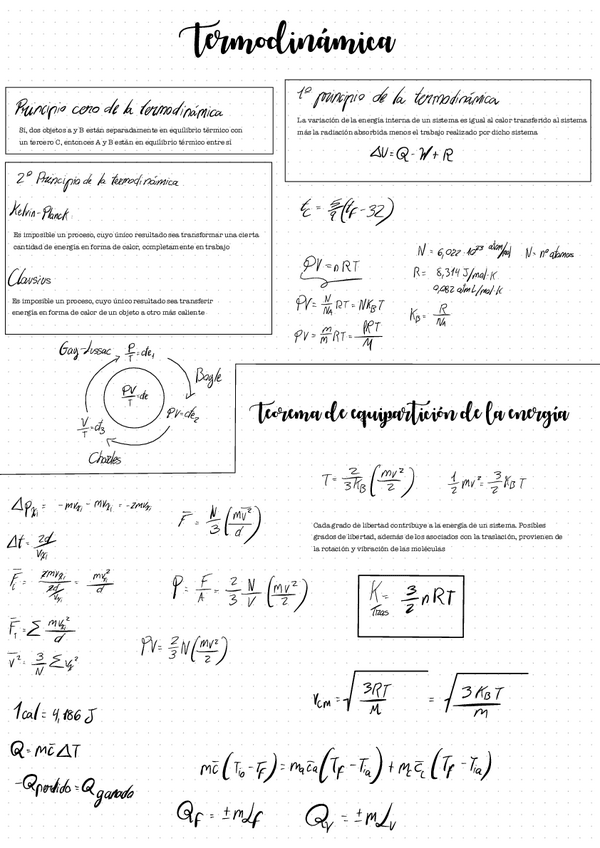 Termodinámica
Principio cero de la termodinámica
Si, dos objetos a y B están separadamente en equilibrio térmico con
un tercero C, entonces A y B están en equilibrio térmico entre sí
1º principio de la termodinámica
La variación de la energía interna de un sistema es igual al calor transferido al sistema
más la radiación absorbida menos el trabajo realizado por dicho sistema
ΔU = Q - W + R
2º Principio de la termodinámica
Kelvin-Planck:
Es imposible un proceso, cuyo único resultado sea transformar una cierta
cantidad de energía en forma de calor, completamente en trabajo
Clausius
Es imposible un proceso, cuyo único resultado sea transferir
energía en forma de calor de un objeto a otro más caliente
t_c = 5/9 (t_F - 32)
PV = nRT
PV = N/N_A RT = N K_B T
PV = m/M RT = ρRT/M
N = 6,022 · 10²³ atom/mol N = nº átomos
R = 8,314 J/mol·K
0,082 atm L/mol·K
K_B = R/N_A
Gay-Lussac P/T = cte₁
Boyle
PV/T = cte
PV = cte₂
V/T = ct₃
Charles
Teorema de equipartición de la energía
T = 2/3K_B (mv²/2) 1/2 mv² = 3/2 K_B T
Cada grado de libertad contribuye a la energía de un sistema. Posibles
grados de libertad, además de los asociados con la traslación, provienen de
la rotación y vibración de las moléculas
K_Tras = 3/2 nRT
Δp_xi = -mv_xi - mv_xi = -2mv_xi
Δt = 2d/v_xi
F̄ = N/3 (mv̄²/d)
F̄_i = 2mv_xi / (2d/v_xi) = mv_xi²/d
P = F/A = 2/3 N/V (mv²/2)
F̄₁ = Σ mv_xi²/d
v̄² = 3/N Σ v_x²
PV = 2/3 N (mv²/2)
v_cm = √(3RT/M) = √(3K_B T/m)
1 cal = 4,186 J
Q = mc̄ ΔT
-Q perdido = Q ganado
mc̄ (T_io - T_F) = m_a c̄_a (T_F - T_ia) + m_c c̄_c (T_F - T_ia)
Q_F = ± m L_f Q_v = ± m L_v